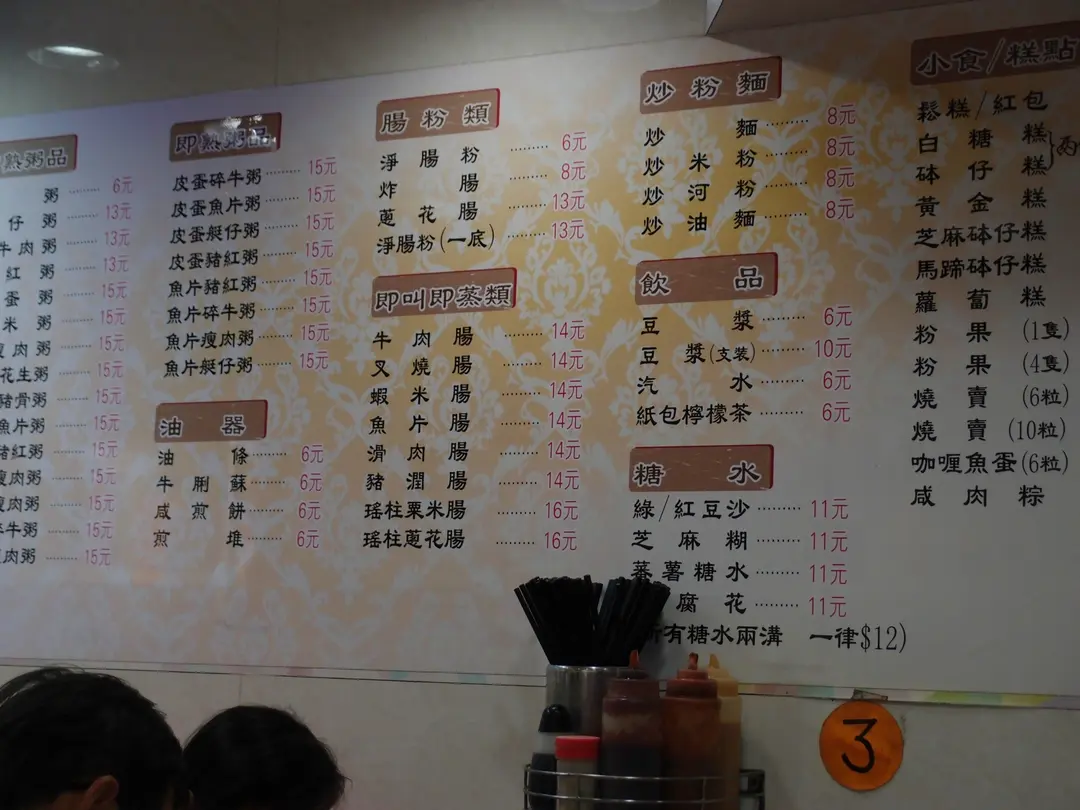 熟粥品
粥 6元
仔粥 13元
牛肉粥 13元
紅粥 13元
蛋粥 15元
米粥 15元
肉粥 15元
花生粥 15元
豬骨粥 15元
魚片粥 15元
豬紅粥 15元
肉粥 15元
肉粥 15元
牛粥 15元
肉粥 15元
即熟粥品
皮蛋碎牛粥 15元
皮蛋魚片粥 15元
皮蛋艇仔粥 15元
皮蛋豬紅粥 15元
魚片豬紅粥 15元
魚片碎牛粥 15元
魚片瘦肉粥 15元
魚片艇仔粥 15元
油器
油條 6元
牛脷蘇 6元
咸煎餅 6元
煎堆 6元
腸粉類
淨腸粉 6元
炸腸 8元
蔥花腸 13元
淨腸粉(一底) 13元
即叫即蒸類
牛肉腸 14元
叉燒腸 14元
蝦米腸 14元
魚片腸 14元
滑肉腸 14元
豬潤腸 14元
瑤柱粟米腸 16元
瑤柱蔥花腸 16元
炒粉麵
炒麵 8元
炒米粉 8元
炒河粉 8元
炒油麵 8元
飲品
豆漿 6元
豆漿(支裝) 10元
汽水 6元
紙包檸檬茶 6元
糖水
綠/紅豆沙 11元
芝麻糊 11元
蕃薯糖水 11元
腐花 11元
所有糖水兩溝 一律$12)
小食/糕點
鬆糕/紅包
白糖糕
砵仔糕
黃金糕
芝麻砵仔糕
馬蹄砵仔糕
蘿蔔糕
粉果(1隻)
粉果(4隻)
燒賣(6粒)
燒賣(10粒)
咖喱魚蛋(6粒)
咸肉粽
3